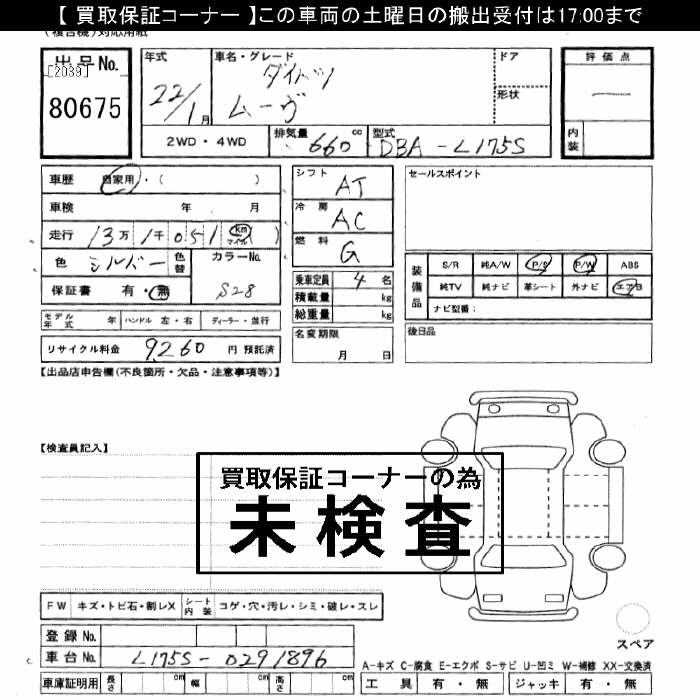 【 買取保証コーナー 】この車両の土曜日の搬出受付は17:00まで
(複合機)対応用紙
出品No.
[2039]
80675
年式
22/1月
車名・グレード
ダイハツ
ムーヴ
ドア
形状
評価点
内装
2WD・4WD
排気量 660 cc
型式 DBA-L175S
車歴 自家用・( )
車検 年 月
走行 13万1千051 km マイル( )
色 シルバー 色替 カラーNo. S28
保証書 有・無
モデル年式 年 ハンドル 左・右 ディーラー・並行
リサイクル料金 9260 円 預託済
シフト AT
冷房 AC
燃料 G
乗車定員 4名
積載量 kg
総重量 kg
名変期限
月 日
セールスポイント
装備品
S/R 純A/W P/S P/W ABS
純TV 純ナビ 革シート 外ナビ エアB
ナビ型番:
後日品
【出品店申告欄(不良箇所・欠品・注意事項等)】
【検査員記入】
買取保証コーナーの為
未検査
FW キズ・トビ石・割レX シート内装 コゲ・穴・汚レ・シミ・破レ・スレ
登録No.
車台No. L175S-0291896
車庫証明用 長さ cm 幅 cm 高さ cm
スペア
A-キズ C-腐食 E-エクボ S-サビ U-凹ミ W-補修 XX-交換済
工具 有・無 ジャッキ 有・無